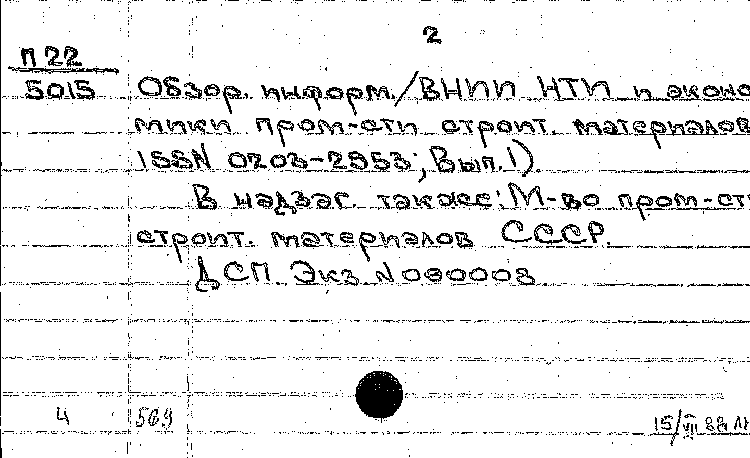 2
П22
5015
Обзор. информ./ВНИИ НТИ и эконо
мики пром-сти строит. материалов
ISSN 0203-2953; Вып. 1).
В надзаг. также: М-во пром-сти
строит. материалов СССР.
ДСП. Экз. N 080008
4 569
15/VII 88